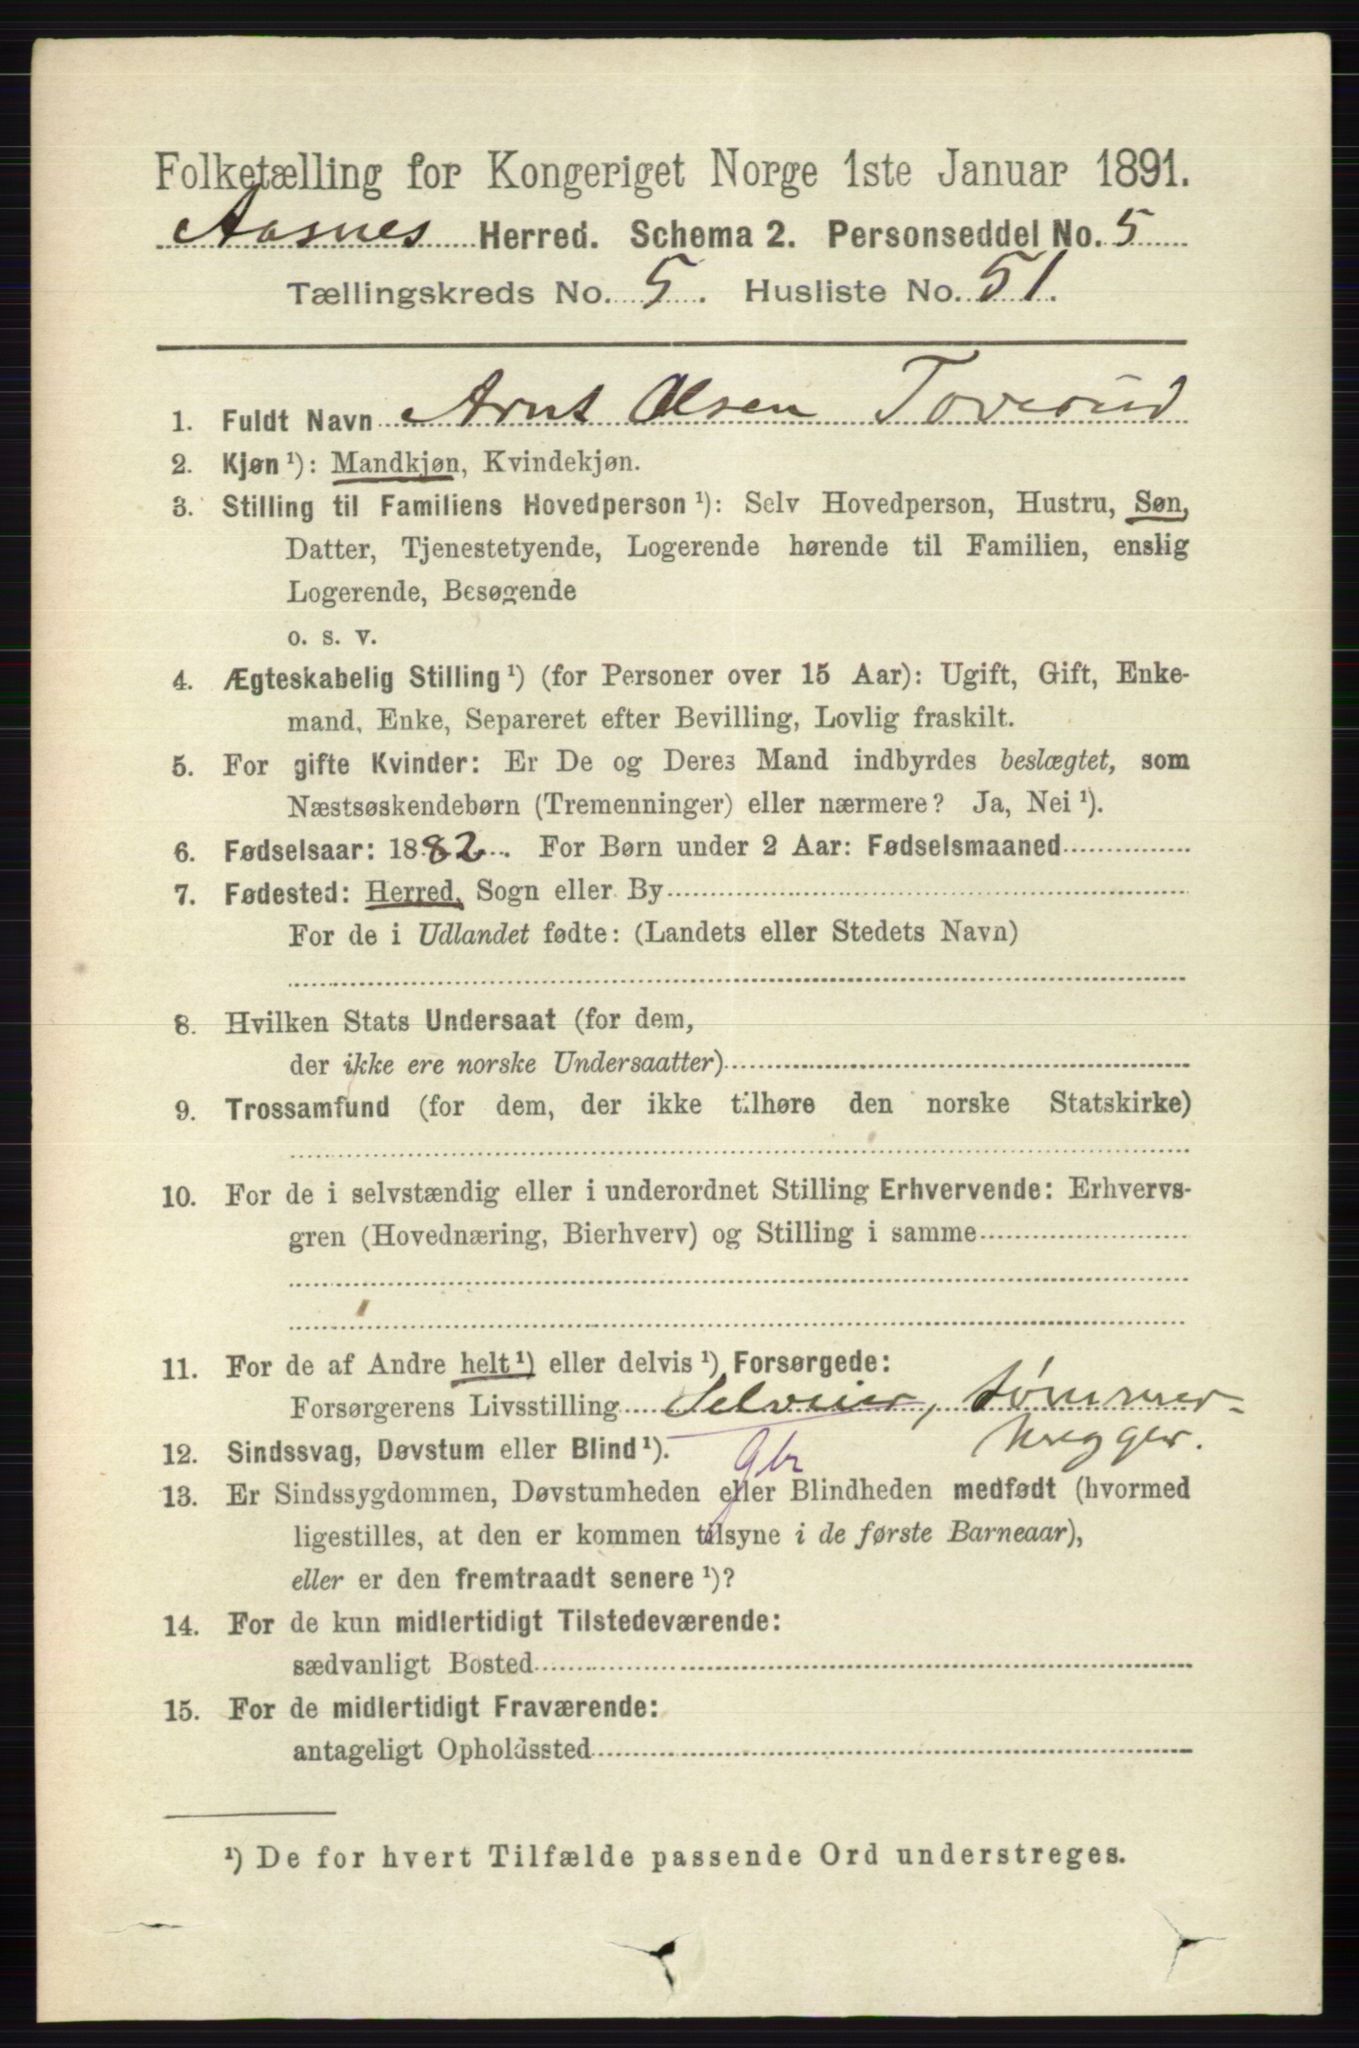 Folketælling for Kongeriget Norge 1ste Januar 1891.
Aasnes Herred. Schema 2. Personseddel No. 5
Tællingskreds No. 5. Husliste No. 51.
1. Fuldt Navn Arnt Olsen Toverud
2. Kjøn ¹): Mandkjøn, Kvindekjøn.
3. Stilling til Familiens Hovedperson ¹): Selv Hovedperson, Hustru, Søn,
Datter, Tjenestetyende, Logerende hørende til Familien, enslig
Logerende, Besøgende
o. s. v.
4. Ægteskabelig Stilling ¹) (for Personer over 15 Aar): Ugift, Gift, Enke-
mand, Enke, Separeret efter Bevilling, Lovlig fraskilt.
5. For gifte Kvinder: Er De og Deres Mand indbyrdes beslægtet, som
Næstsøskendebørn (Tremenninger) eller nærmere? Ja, Nei ¹).
6. Fødselsaar: 1882. For Børn under 2 Aar: Fødselsmaaned
7. Fødested: Herred, Sogn eller By
For de i Udlandet fødte: (Landets eller Stedets Navn)
8. Hvilken Stats Undersaat (for dem,
der ikke ere norske Undersaatter)
9. Trossamfund (for dem, der ikke tilhøre den norske Statskirke)
10. For de i selvstændig eller i underordnet Stilling Erhvervende: Erhvervs-
gren (Hovednæring, Bierhverv) og Stilling i samme
11. For de af Andre helt ¹) eller delvis ¹) Forsørgede:
Forsørgerens Livsstilling Selveier, tømmer-
hugger.
12. Sindssvag, Døvstum eller Blind ¹). gbr
13. Er Sindssygdommen, Døvstumheden eller Blindheden medfødt (hvormed
ligestilles, at den er kommen tilsyne i de første Barneaar),
eller er den fremtraadt senere ¹)?
14. For de kun midlertidigt Tilstedeværende:
sædvanligt Bosted
15. For de midlertidigt Fraværende:
antageligt Opholdssted
¹) De for hvert Tilfælde passende Ord understreges.